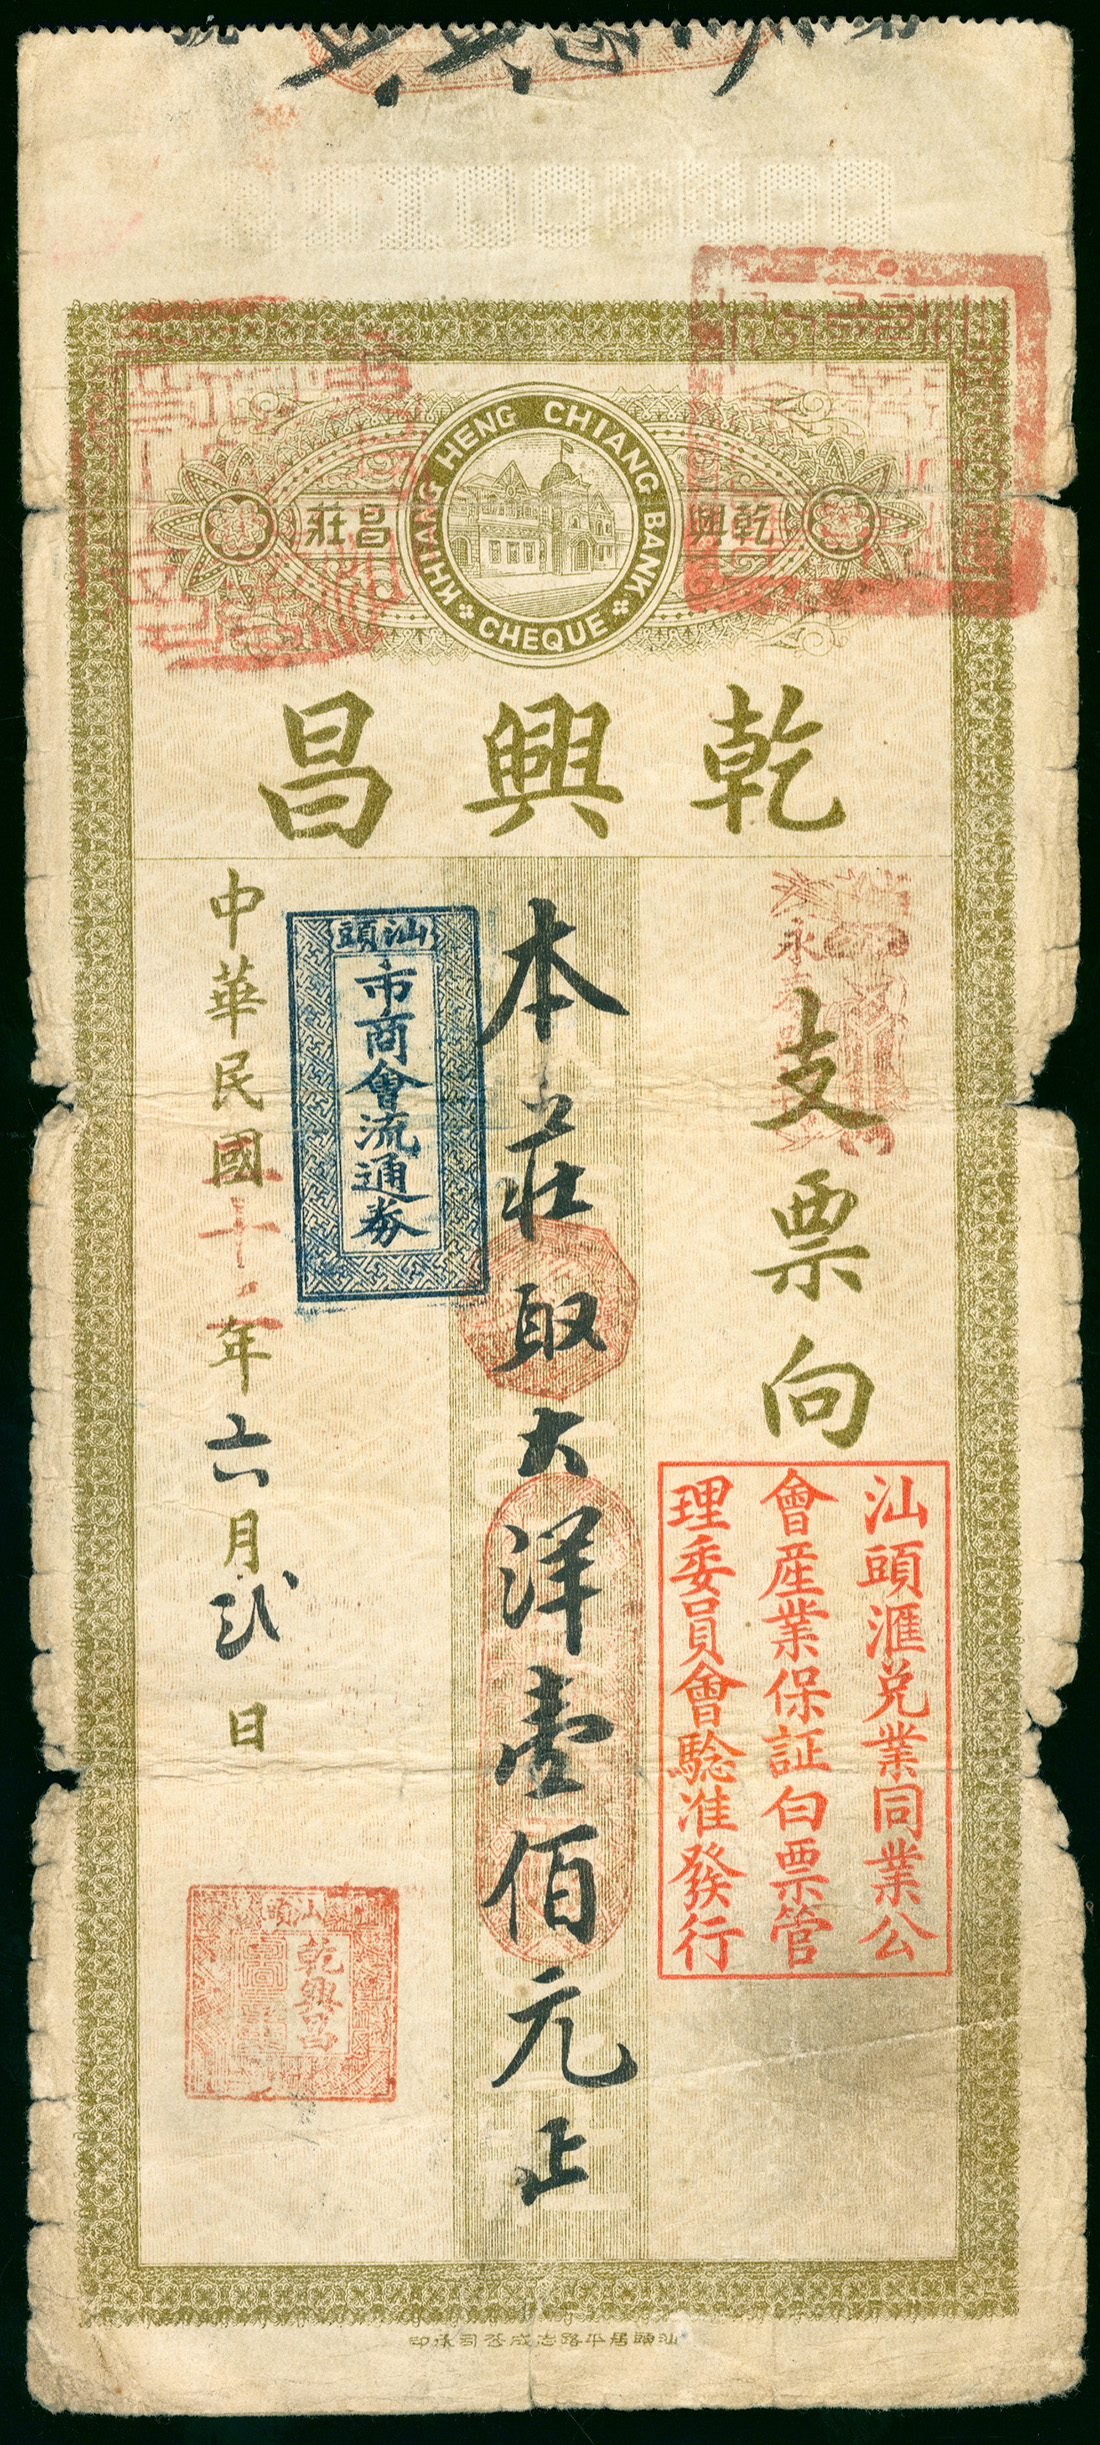 KHIANG HENG CHIANG BANK
CHEQUE
乾興
昌莊
乾興昌
支票向
汕頭滙兑業同業公
會産業保証白票管
理委員會驗准發行
本莊取大洋壹佰元正
汕頭
市商會流通券
中華民國二十二年六月弍日
汕頭
乾興昌
汕頭居平路志成公司承印